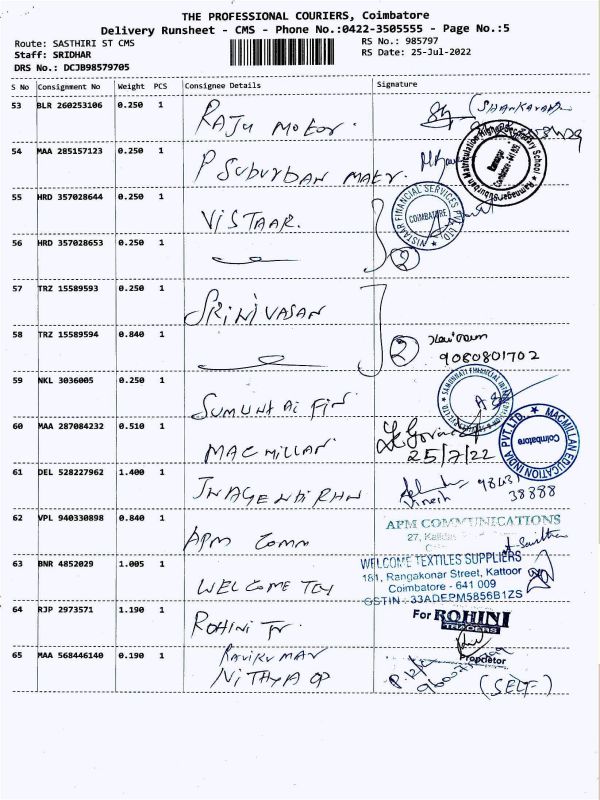 THE PROFESSIONAL COURIERS, Coimbatore
Delivery Runsheet - CMS - Phone No.:0422-3505555 - Page No.:5
Route: SASTHIRI ST CMS
Staff: SRIDHAR
DRS No.: DCJB98579705
RS No.: 985797
RS Date: 25-Jul-2022
S No Consignment No Weight PCS Consignee Details Signature
53 BLR 260253106 0.250 1 RAJU MOTOR.
54 MAA 285157123 0.250 1 P SUBURBAN MATR.
Ramnagar Suburban Matriculation Higher Secondary School
Ramnagar
Coimbatore - 641 009
55 HRD 357028644 0.250 1 VISTAAR.
VISTAAR FINANCIAL SERVICES PVT. LTD.
COIMBATORE
56 HRD 357028653 0.250 1
2
57 TRZ 15589593 0.250 1 SRINIVASAN
58 TRZ 15589594 0.840 1
2
9080801702
59 NKL 3036005 0.250 1
60 MAA 287084232 0.510 1 MACMILLAN
25/7/22
MACMILLAN EDUCATION INDIA PVT. LTD.
Coimbatore
61 DEL 528227962 1.400 1
Dinesh 98431
38888
62 VPL 940330898 0.840 1 APM COMM
APM COMMUNICATIONS
27, Kalidas
63 BNR 4852029 1.005 1 WELCOME TEX
WELCOME TEXTILES SUPPLIERS
181, Rangakonar Street, Kattoor
Coimbatore - 641 009
GSTIN : 33ADEPM5856B1ZS
64 RJP 2973571 1.190 1 ROHINI Tr.
For ROHINI
Proprietor
65 MAA 568446140 0.190 1 RAVIKUMAR
NITHYA OP
(SELF)